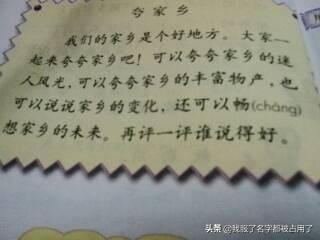 夸家乡
我们的家乡是个好地方。大家一
起来夸夸家乡吧！可以夸夸家乡的迷
人风光，可以夸夸家乡的丰富物产，也
可以说说家乡的变化，还可以畅(chàng)
想家乡的未来。再评一评谁说得好。
头条 @我服了名字都被占用了